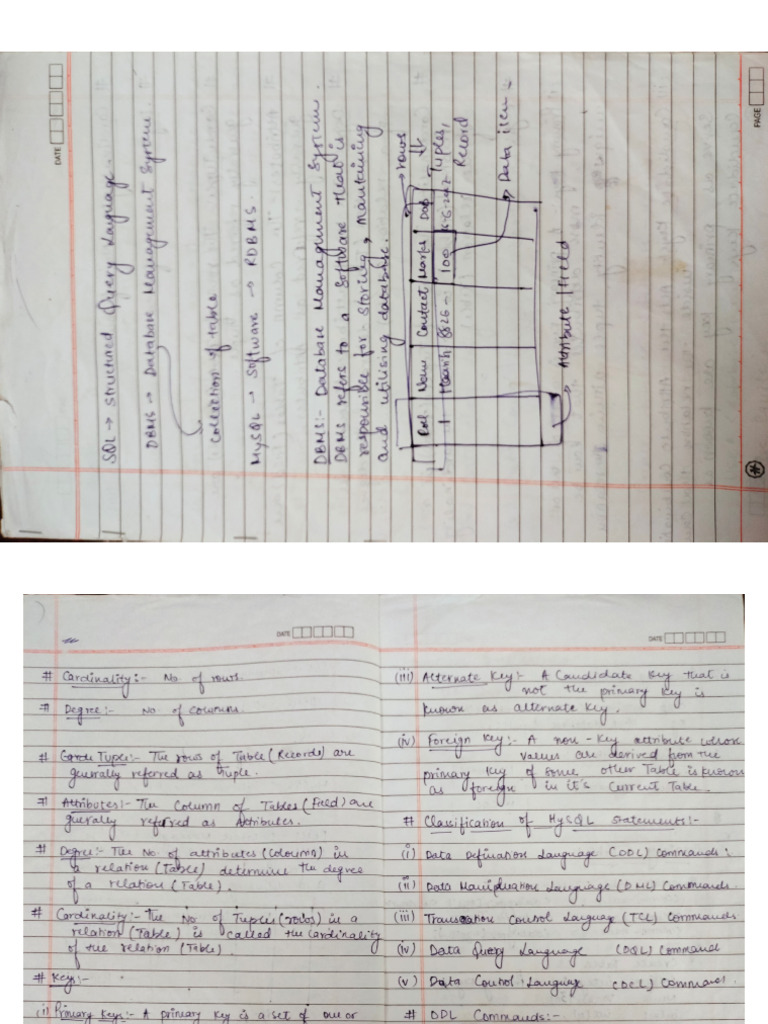 DATE
PAGE
SQL → Structured Query Language.
DBMS → Database Management System.
collection of table
MySQL → Software → RDBMS
DBMS:- Database Management System.
DBMS refers to a Software that is
responsible for storing, maintaining
and utilising database.
→ rows
Roll Name Contact Marks Dob
1 8826- 100
Tuples,
Record
Data item
Attribute / Field
DATE
# Cardinality:- No. of rows.
# Degree:- No. of coloumns.
# Tuple:- The rows of Table (Records) are
generally referred as Tuple.
# Attributes:- The Column of Tables (Field) are
generally referred as Attributes.
# Degree:- The No. of attributes (Coloumns) in
a relation (Table) determine the degree
of a relation (Table).
# Cardinality:- The No of Tuples (rows) in a
relation (Table) is called the Cardinality
of the relation (Table).
# Keys:-
(i) Primary Keys:- A primary key is a set of one or
DATE
(iii) Alternate Key:- A Candidate Key that is
not the primary key is
known as alternate key.
(iv) Foreign Key:- A non-key attribute whose
values are derived from the
primary key of some other Table is known
as foreign in it's Current Table.
# Classification of MySQL Statements:-
(i) Data Defination Language (DDL) Commands:
(ii) Data Language (DML) Commands.
(iii) Control Language (TCL) Commands
(iv) Data Query Language (DQL) Command
(v) Data Control Language (DCL) Command.
# DDL Commands:-